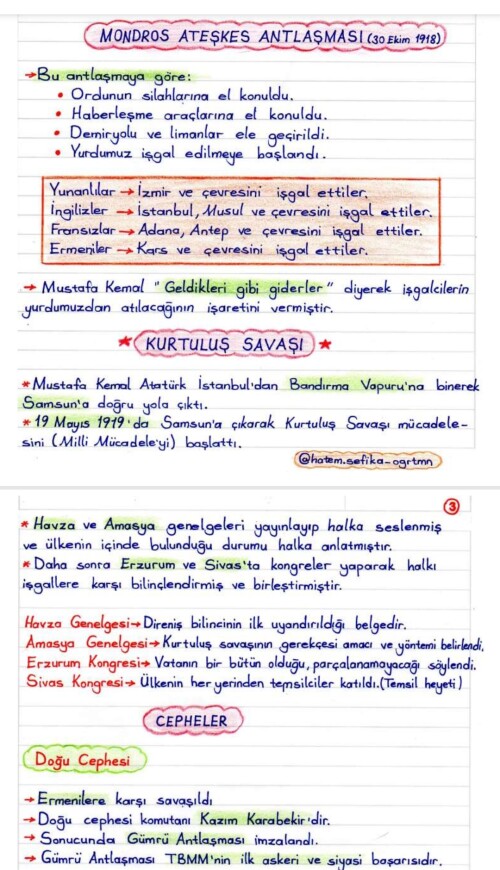 MONDROS ATEŞKES ANTLAŞMASI (30 Ekim 1918)
→ Bu antlaşmaya göre:
• Ordunun silahlarına el konuldu.
• Haberleşme araçlarına el konuldu.
• Demiryolu ve limanlar ele geçirildi.
• Yurdumuz işgal edilmeye başlandı.
Yunanlılar → İzmir ve çevresini işgal ettiler.
İngilizler → İstanbul, Musul ve çevresini işgal ettiler.
Fransızlar → Adana, Antep ve çevresini işgal ettiler.
Ermeniler → Kars ve çevresini işgal ettiler.
→ Mustafa Kemal "Geldikleri gibi giderler" diyerek işgalcilerin
yurdumuzdan atılacağının işaretini vermiştir.
★ KURTULUŞ SAVAŞI ★
* Mustafa Kemal Atatürk İstanbul'dan Bandırma Vapuru'na binerek
Samsun'a doğru yola çıktı.
* 19 Mayıs 1919'da Samsun'a çıkarak Kurtuluş Savaşı mücadele-
sini (Milli Mücadele'yi) başlattı.
@hatem.sefika-ogrtmn
3
* Havza ve Amasya genelgeleri yayınlayıp halka seslenmiş
ve ülkenin içinde bulunduğu durumu halka anlatmıştır.
* Daha sonra Erzurum ve Sivas'ta kongreler yaparak halkı
işgallere karşı bilinçlendirmiş ve birleştirmiştir.
Havza Genelgesi → Direniş bilincinin ilk uyandırıldığı belgedir.
Amasya Genelgesi → Kurtuluş savaşının gerekçesi amacı ve yöntemi belirlendi.
Erzurum Kongresi → Vatanın bir bütün olduğu, parçalanamayacağı söylendi.
Sivas Kongresi → Ülkenin her yerinden temsilciler katıldı. (Temsil heyeti)
CEPHELER
Doğu Cephesi
→ Ermenilere karşı savaşıldı
→ Doğu cephesi komutanı Kazım Karabekir'dir.
→ Sonucunda Gümrü Antlaşması imzalandı.
→ Gümrü Antlaşması TBMM'nin ilk askeri ve siyasi başarısıdır.